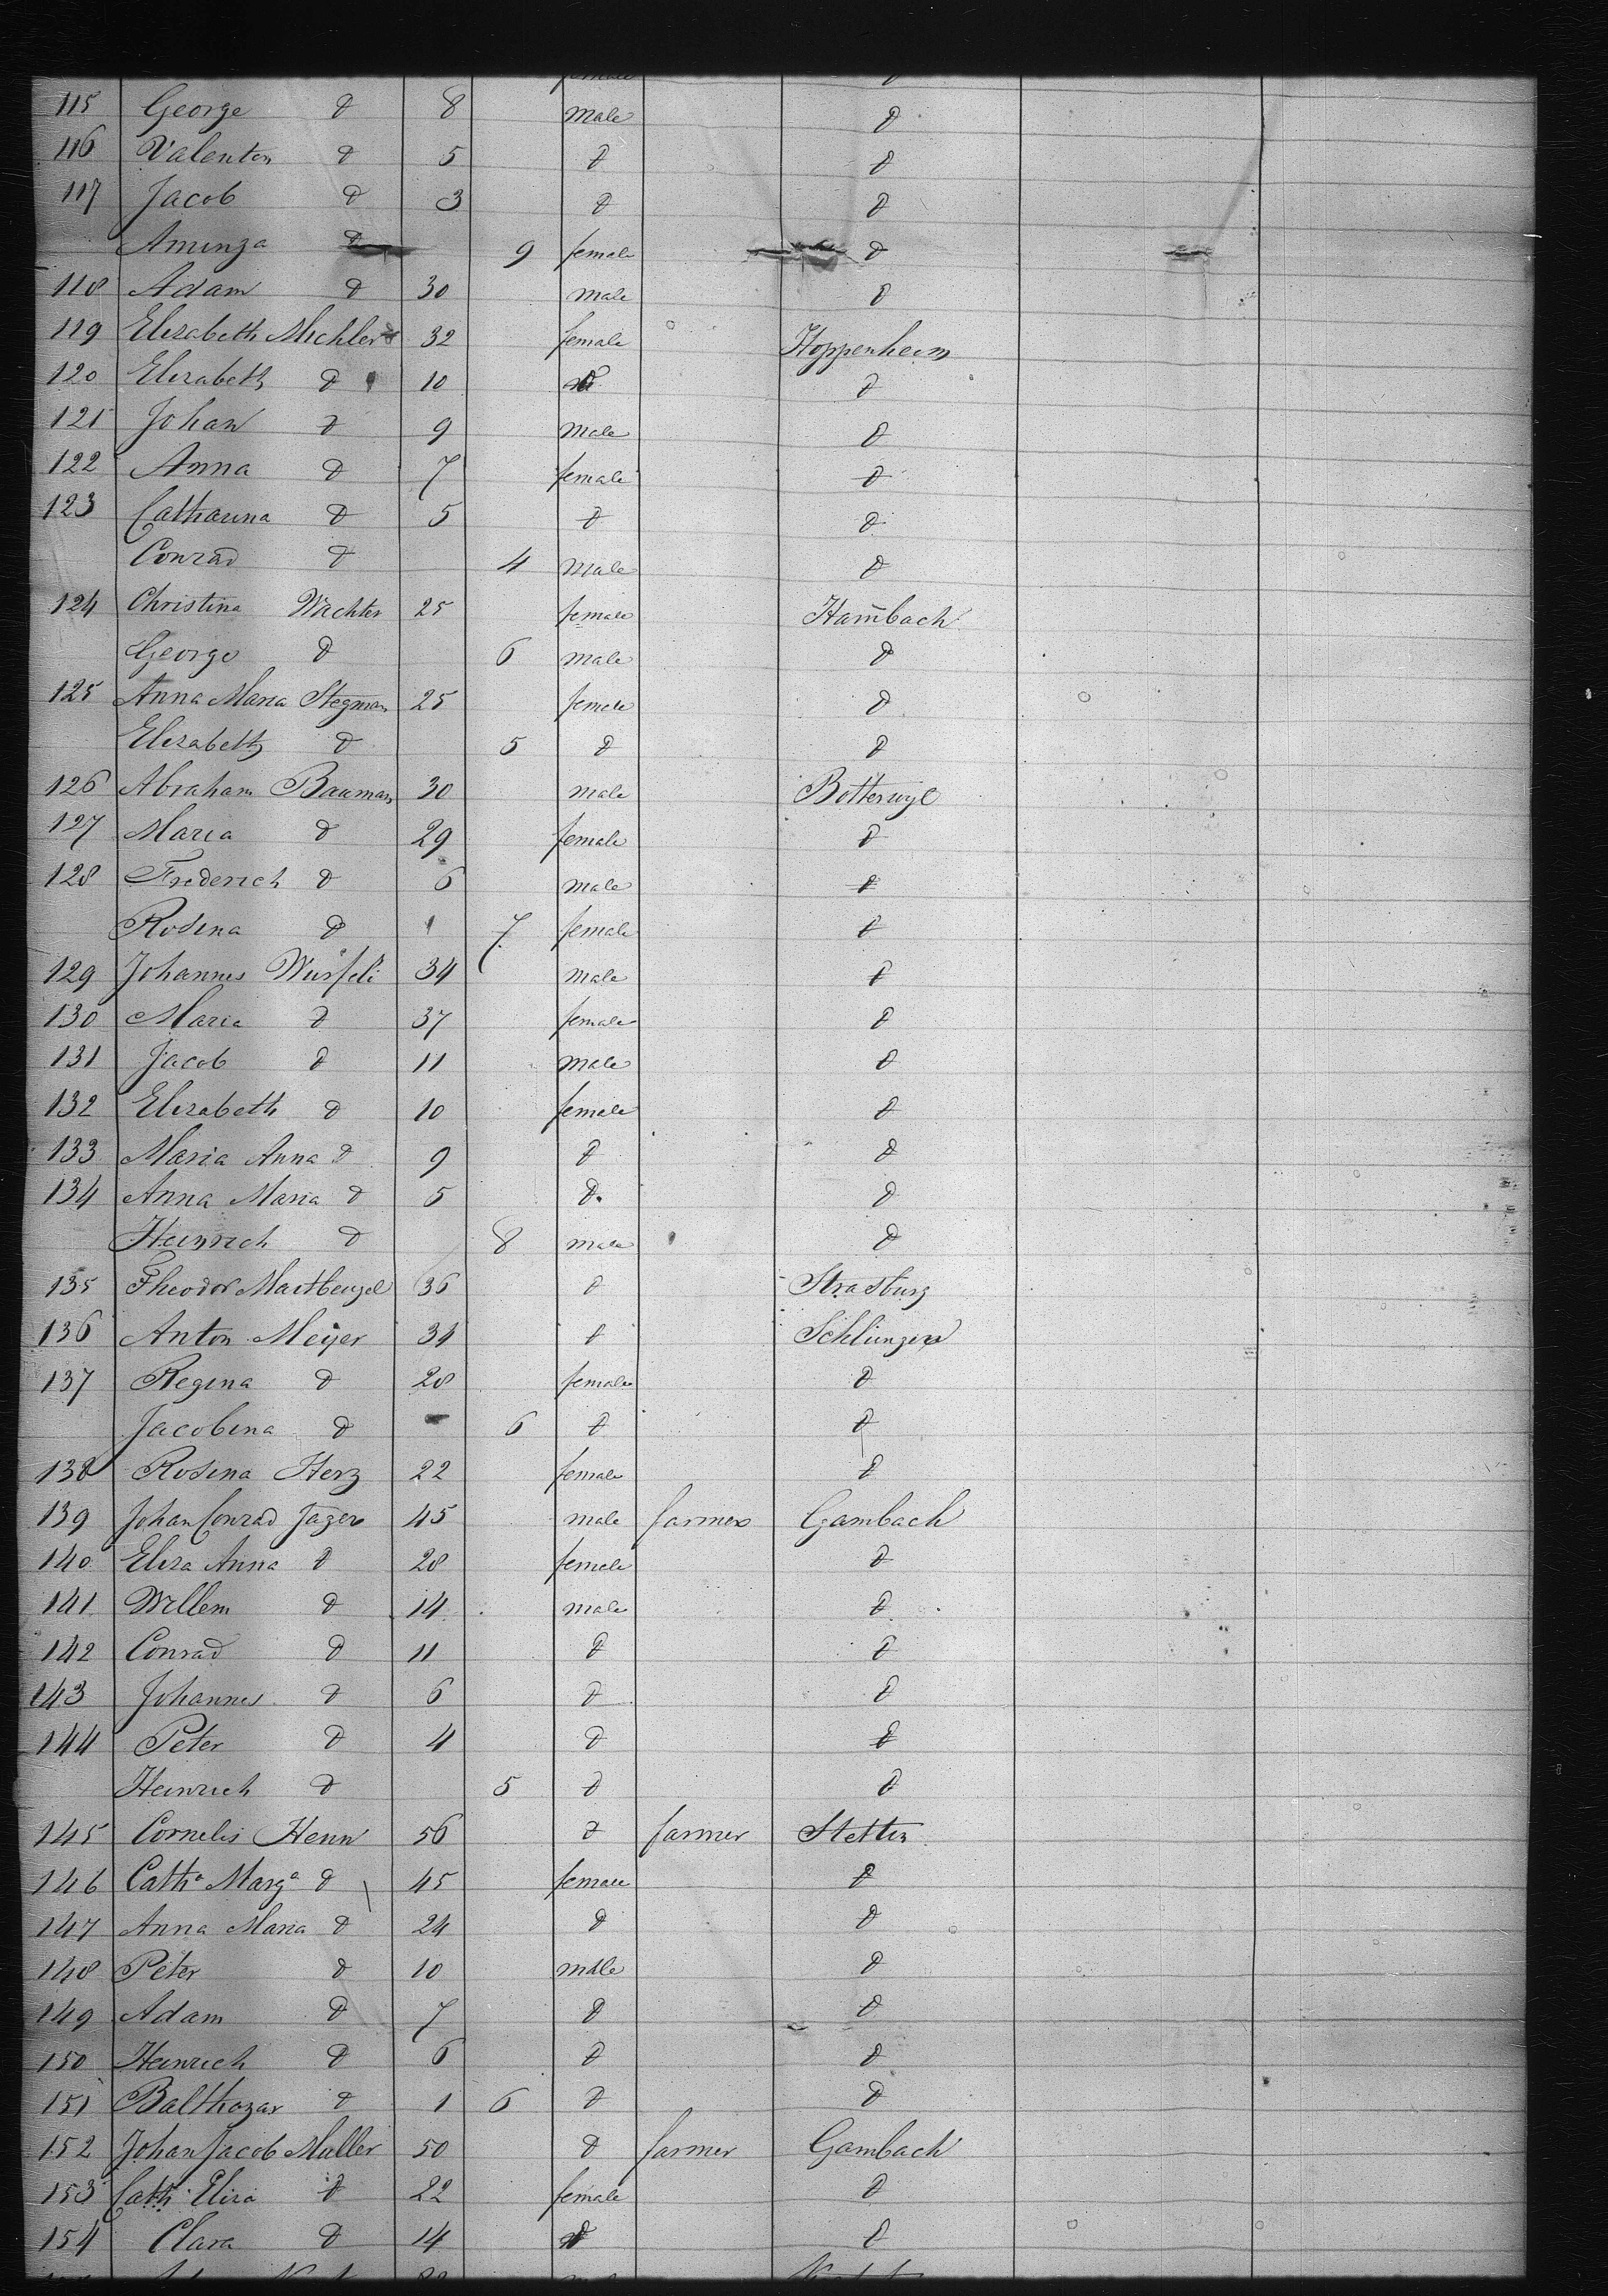 female d
115 George d 8 male d
116 Valenton d 5 d d
117 Jacob d 3 d d
Aminza d 9 female d
118 Adam d 30 male d
119 Elisabeth Michler 32 female Hoppenheim
120 Elizabeth d 10 d d
121 Johan d 9 male d
122 Anna d 7 female d
123 Catharina d 5 d d
Conrad d 4 male d
124 Christina Wachter 25 female Hambach
George d 6 male d
125 Anna Maria Stegman 25 female d
Elizabeth d 5 d d
126 Abraham Bauman 30 male Botterwyl
127 Maria d 29 female d
128 Frederich d 6 male d
Rosina d 7 female d
129 Johannes Würfeli 34 male d
130 Maria d 37 female d
131 Jacob d 11 male d
132 Elizabeth d 10 female d
133 Maria Anna d 9 d d
134 Anna Maria d 5 d d
Heinrich d 8 male d
135 Theodor 36 d Strasburg
136 Anton Meijer 34 d Schlingen
137 Regina d 28 female d
Jacobina d 6 d d
138 Rosina Herz 22 female d
139 Johan Conrad Jager 45 male farmer Gambach
140 Eliza Anna d 28 female d
141 Willem d 14 male d
142 Conrad d 11 d d
143 Johannes d 6 d d
144 Peter d 4 d d
Heinrich d 5 d d
145 Cornelis Henn 56 d farmer Stettin
146 Catha Marga d 45 female d
147 Anna Maria d 24 d d
148 Peter d 10 male d
149 Adam d 7 d d
150 Heinrich d 6 d d
151 Balthazar d 1 6 d d
152 Johan Jacob Muller 50 d farmer Gambach
153 Cath. Eliza d 22 female d
154 Clara d 14 d d